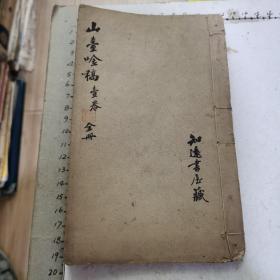 山臺唫稿壹卷
全册
知遠書屋藏